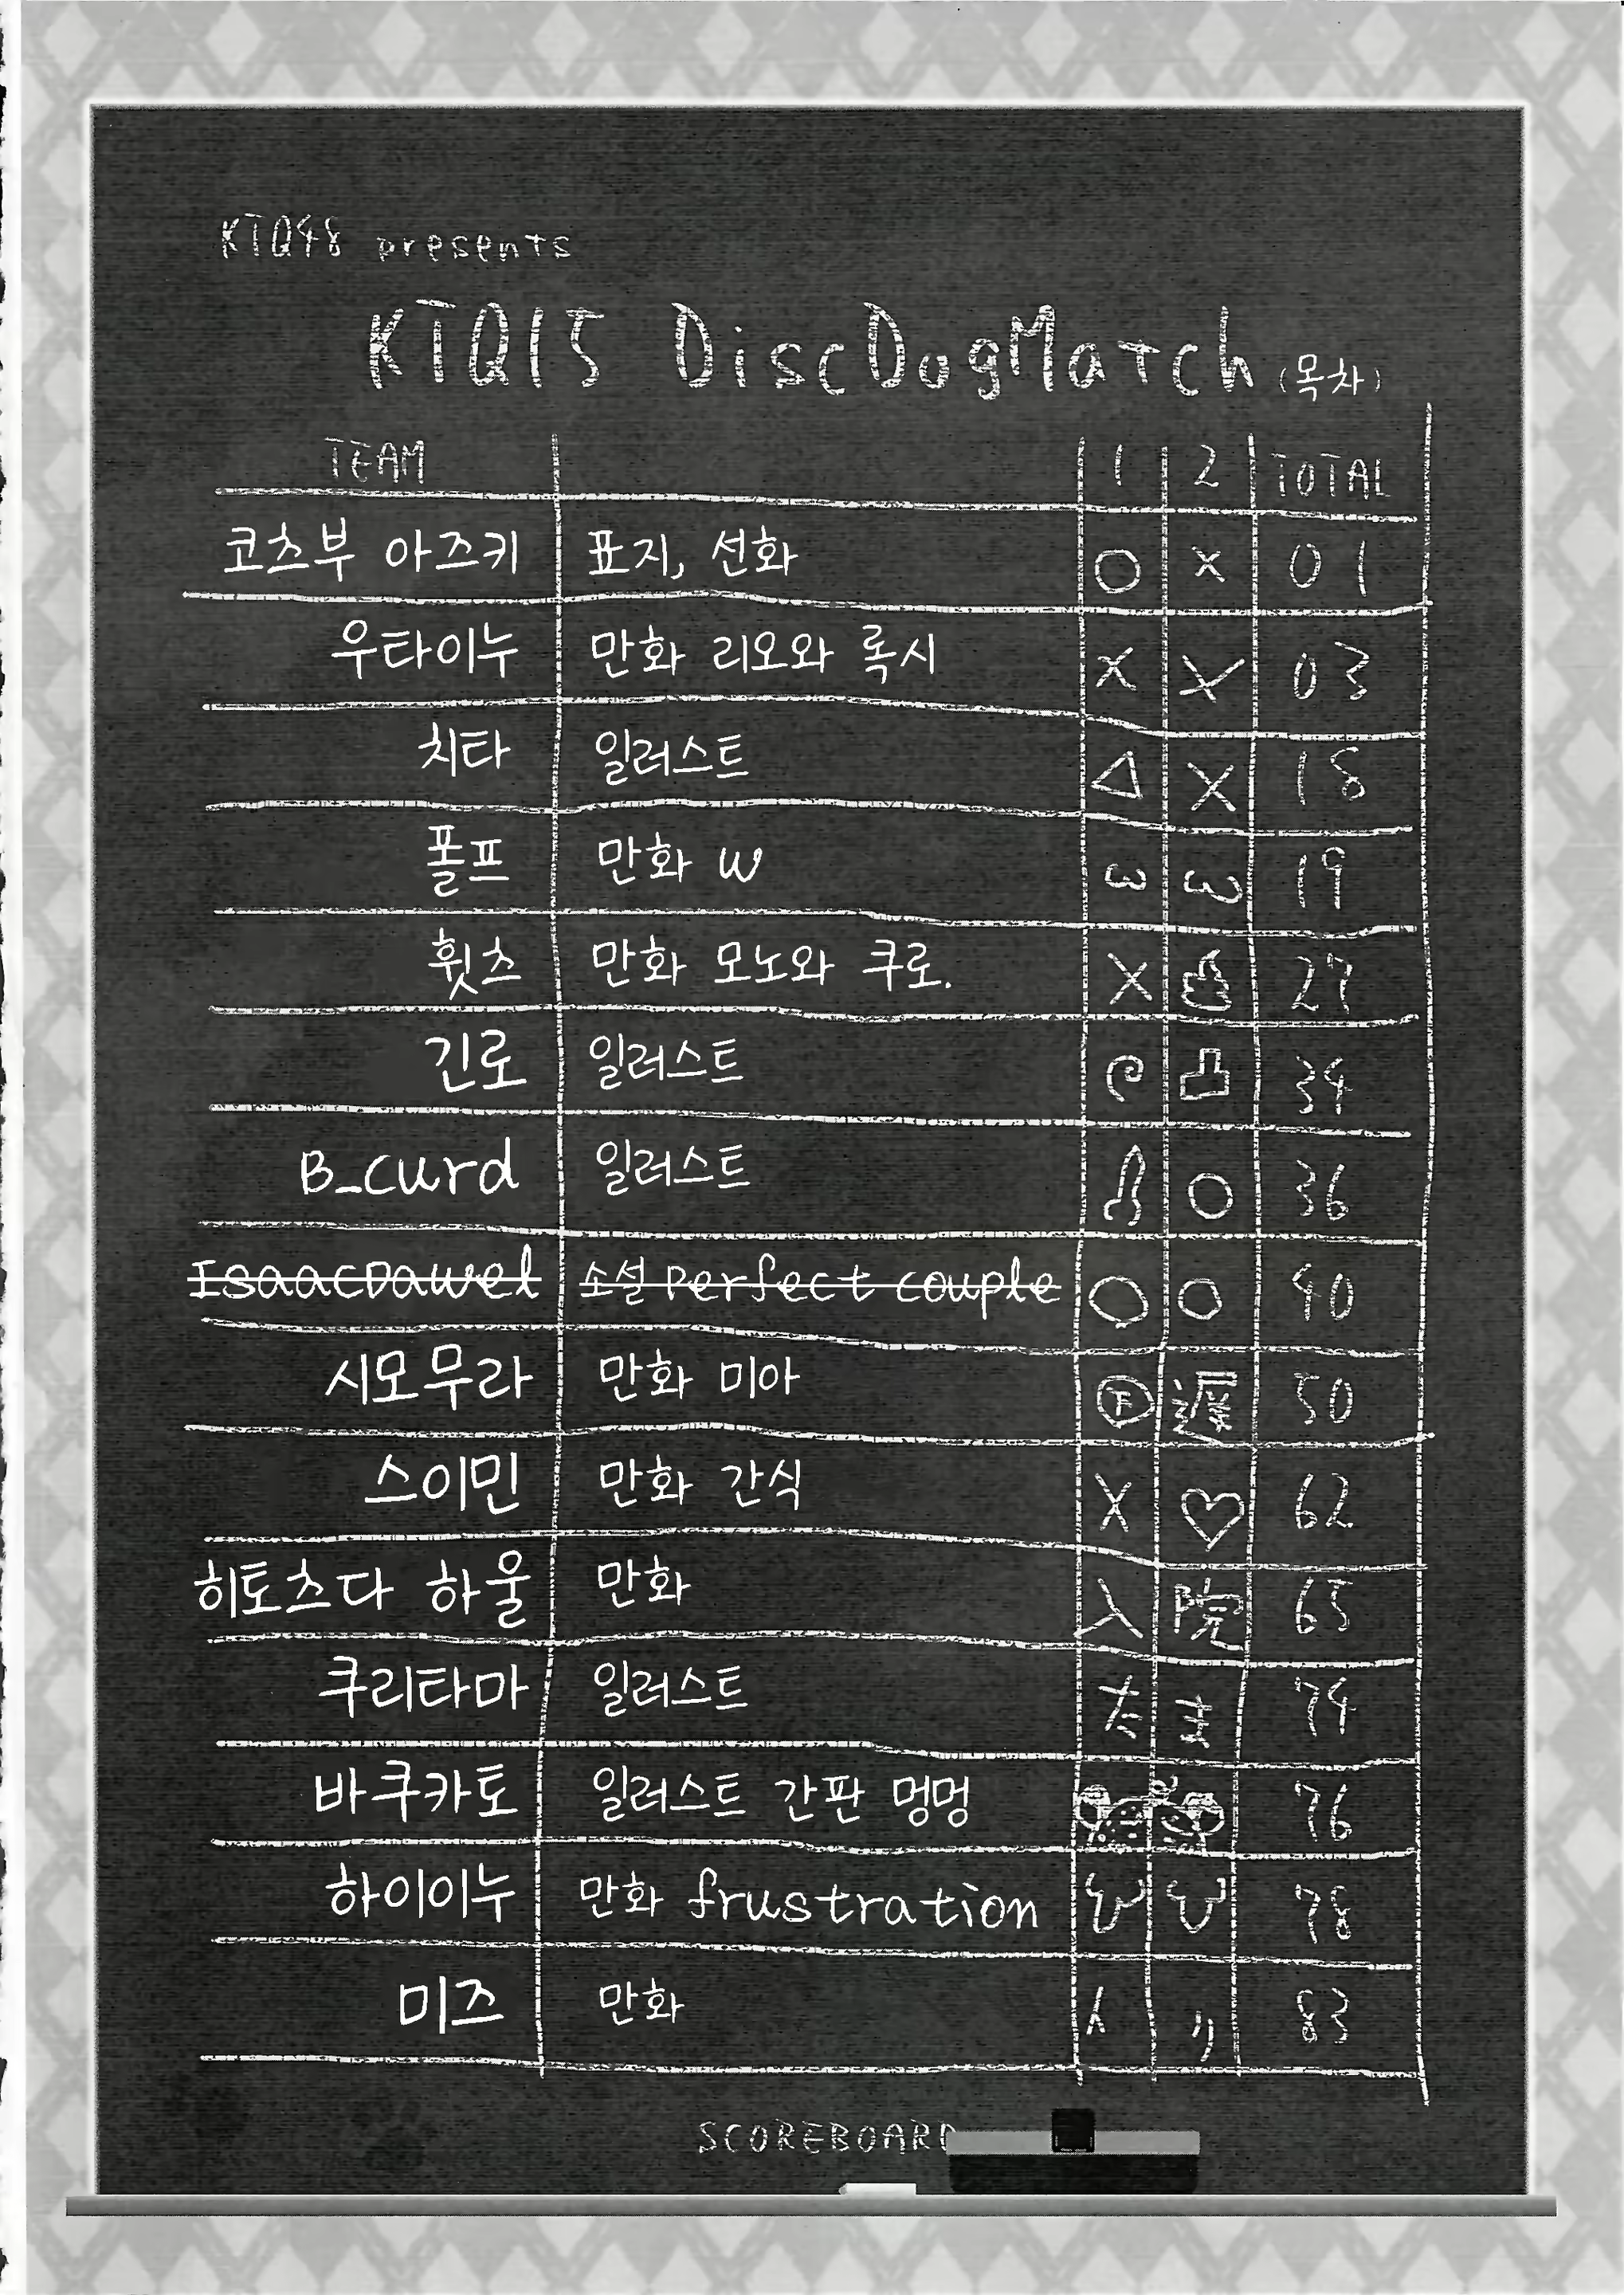 KTQ48 presents
KTQ15 DiscDogMatch (목차)
TEAM 1 2 TOTAL
코츠부 아즈키 표지, 선화 ○ × 01
우타이누 만화 리오와 록시 × × 03
치타 일러스트 △ × 18
폴프 만화 W ω ω 19
휫츠 만화 모노와 쿠로. × 27
긴로 일러스트 34
B_curd 일러스트 ○ 36
IsaacDawel 소설 Perfect couple ○ ○ 40
시모무라 만화 미아 下 遅 50
스이민 만화 간식 × ♡ 62
히토츠다 하울 만화 入 院 65
쿠리타마 일러스트 た ま 74
바쿠카토 일러스트 간판 멍멍 76
하이이누 만화 frustration 78
미즈 만화 83
SCOREBOARD